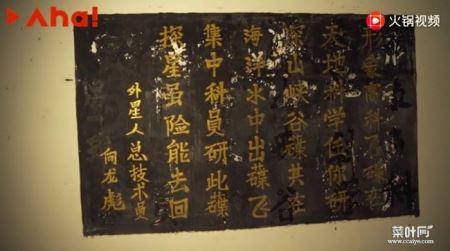 Aha!
火锅视频
象高科飞碟
天地科学任你研
山峡谷碟其在
海洋水中出碟飞
集中科员研此碟
探星虽险能去回
外星人总技术员
向龙彪
菜叶网
www.ccaiye.com